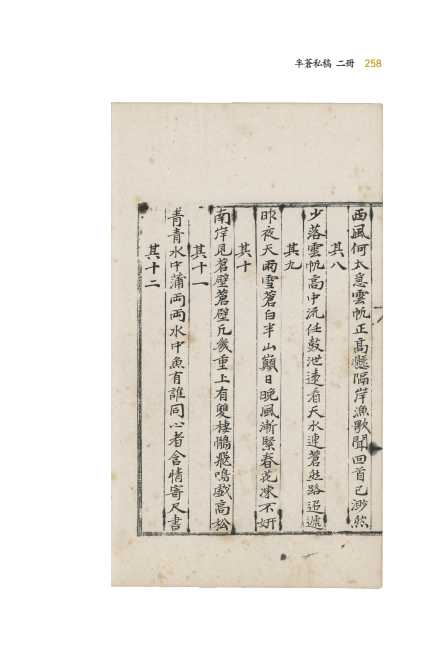 半蒼私稿 二冊 258
西風何太急雲帆正高懸隔岸漁歌聞回首已渺然
其八
少落雲帆高中流任鼓泄遠看天水連蒼茫路迢遞
其九
昨夜天雨雪蒼白半山巔日晚風漸緊春花凍不妍
其十
南岸見蒼壁蒼壁凡幾重上有雙棲鶻飛鳴戲高松
其十一
青青水中蒲兩兩水中魚有誰同心者含情寄尺書
其十二